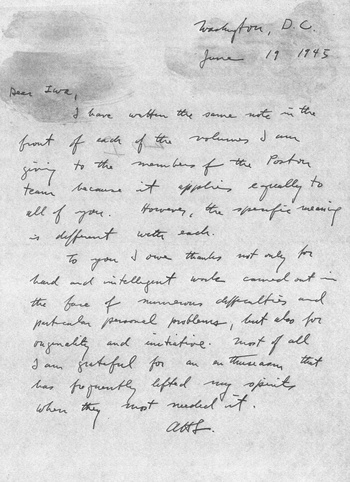 Washington, D.C.
June 19 1945
Dear Iwa,
I have written the same note in the
front of each of the volumes I am
giving to the members of the Poston
team because it applies equally to
all of you. However, the specific meaning
is different with each.
To you I owe thanks not only for
hard and intelligent work carried out in
the face of numerous difficulties and
particular personal problems, but also for
originality and initiative. Most of all
I am grateful for an enthusiasm that
has frequently lifted my spirits
when they most needed it.
AHL.